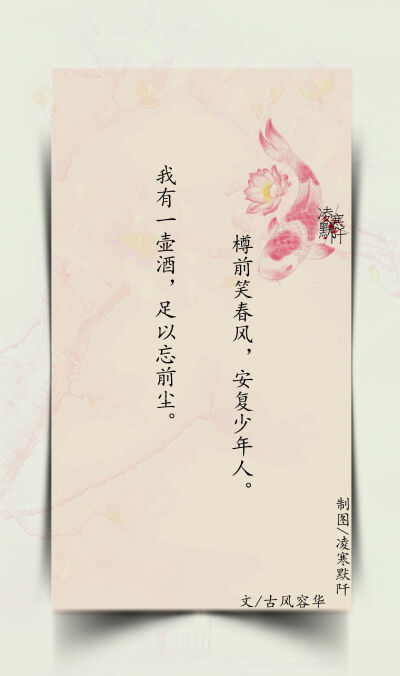 我有一壶酒，足以忘前尘。
樽前笑春风，安复少年人。
凌寒默阡
制图/凌寒默阡
文/古风容华